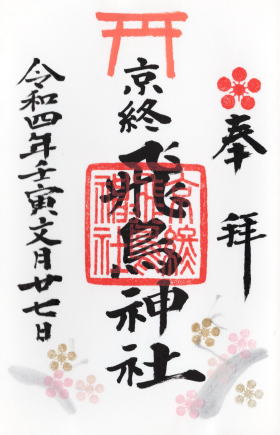 奉拜
京終飛鳥神社
令和四年壬寅文月廿七日